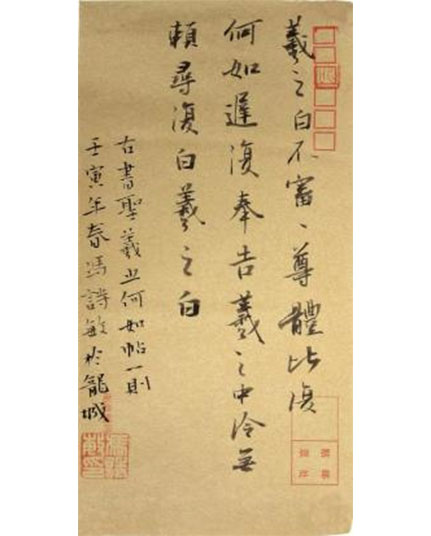 羲之白不審、尊體比復
何如遲復奉告羲之中冷無
賴尋復白羲之白
右書聖羲之何如帖一則
壬寅年春馮詩敏於龍城